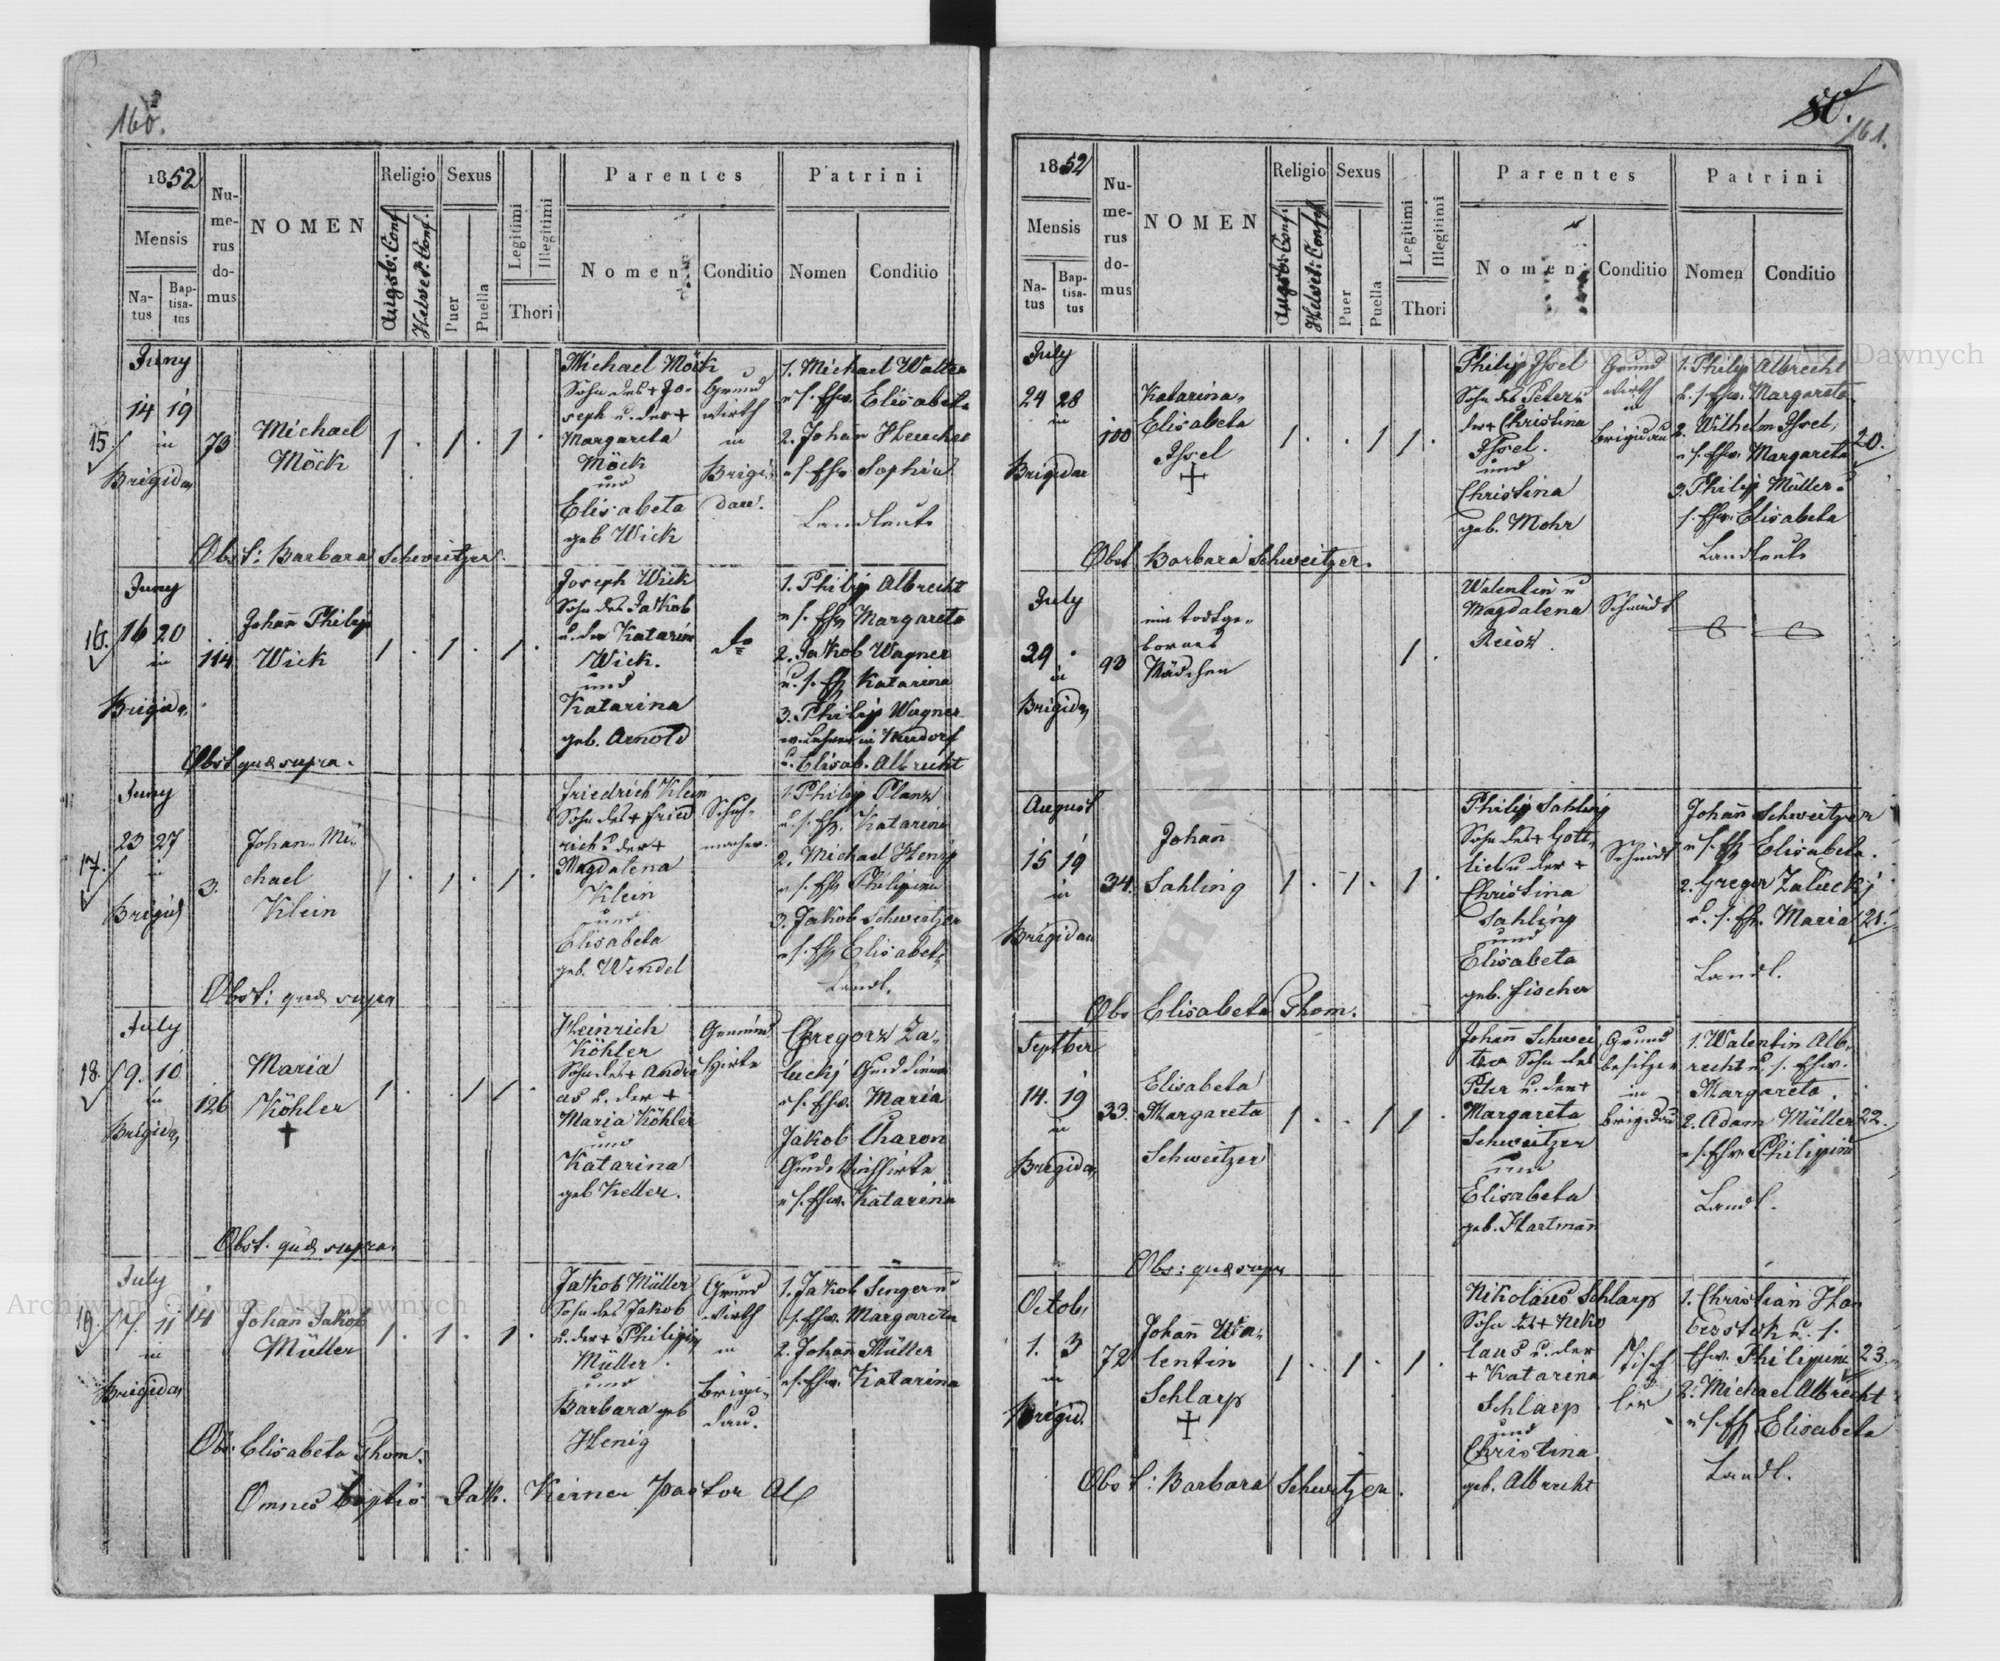 160.
1852
Mensis
Na-
tus
Bap-
tisa-
tus
Nu-
me-
rus
do-
mus
NOMEN
Religio
Augsb: Conf.
Helvet: Conf.
Sexus
Puer
Puella
Legitimi
Illegitimi
Thori
Parentes
Nomen
Conditio
Patrini
Nomen
Conditio
15.
Juny
14 19
in
Brigidau
73
Michael
Möck
1 . 1 . 1 .
Michael Möck
Sohn des + Jo-
seph u. der +
Margareta
Möck
und
Elisabeta
geb Wick
Grund
wirth
in
Brigi-
dau.
1. Michael Walter
u s. Ehw. Elisabeta
2. Johan Heucher
u s. Ehw Sophia
Landleute
Obst: Barbara Schweitzer.
16.
Juny
16 20
in
Brigidau
114
Johan̄ Philip
Wick
1 . 1 . 1 .
Joseph Wick
Sohn des Jakob
u. der Katarina
Wick.
und
Katarina
geb. Arnold
do
1. Philip Albrecht
u s. Ehw Margareta
2. Jakob Wagner
u. s. Ehw Katarina
3. Philip Wagner
ev. Lehrer in Neudorf
u. Elisab. Albrecht
Obst quae supra.
17.
Juny
23 27
in
Brigid
3.
Johan Mi-
chael
Klein
1 . 1 . 1 .
Friedrich Klein
Sohn des + Fried
rich u. der +
Magdalena
Klein
und
Elisabeta
geb. Wendel
Schuh-
macher.
1. Philip Planz
u. s. Ehw. Katarina
2. Michael Henig
u s. Ehw Philippina
3. Jakob Schweitzer
u s. Ehw Elisabeta
Landl.
Obst: quae supra
18.
July
9. 10
in
Brigidau
126
Maria
Köhler
+
1 . . 1 1 .
Heinrich
Köhler
Sohn des + Andre
as u. der +
Maria Köhler
und
Katarina
geb Keller.
Gemeind
Hirte
Gregorz Za-
lucki
u s. Ehw. Maria
Jakob Charon
u s. Ehw. Katarina
Obst. quae supra.
19.
July
7. 11
in
Brigidau
14
Johan Jakob
Müller
1 . 1 . 1 .
Jakob Müller
Sohn des Jakob
u. der + Philipin
Müller.
und
Barbara geb
Henig
Grund
wirth
in
Brigi-
dau.
1. Jakob Senger u
s. Ehw. Margareta
2. Johan̄ Müller
u s. Ehw. Katarina
Obs. Elisabeta Thom.
Omnes baptis. Jak. Kerner Pastor
80.
161.
1852
Mensis
Na-
tus
Bap-
tisa-
tus
Nu-
me-
rus
do-
mus
NOMEN
Religio
Augsb: Conf.
Helvet: Conf.
Sexus
Puer
Puella
Legitimi
Illegitimi
Thori
Parentes
Nomen
Conditio
Patrini
Nomen
Conditio
July
24 28
in
Brigidau
100
Katarina
Elisabeta
Issel
+
1 . . 1 1 .
Philip Issel
Sohn des Peter u
der + Christina
Issel.
und
Christina
geb. Mohr
Grund
wirth
in
Brigidau
1. Philip Albrecht
u. s. Ehw. Margareta
2. Wilhelm Issel,
u s. Ehw. Margareta
3. Philip Müller u
s. Ehw. Elisabeta
Landleute
20.
Obst Barbara Schweitzer.
July
29 .
in
Brigidau
93
ein todtge-
bornes
Mädchen
1 .
Walentin u
Magdalena
Reisz.
Schmidt
August
15 19
in
Brigidau
34.
Johan̄
Sahling
1 . 1 . 1 .
Philip Sahling
Sohn des + Gott-
lieb u der +
Christina
Sahling
und
Elisabeta
geb. Fischer
Schmidt
Johan̄ Schweitzer
u s. Ehw Elisabeta.
2. Gregor Zalucki
u. s. Ehw. Maria
Landl.
21.
Obs Elisabeta Thom.
Septber
14. 19
in
Brigidau
33.
Elisabeta
Margareta
Schweitzer
1 . . 1 1 .
Johan̄ Schwei-
tzer Sohn des
Peter u. der +
Margareta
Schweitzer
und
Elisabeta
geb. Hartman̄
Grund
besitzer
in
Brigidau
1. Walentin Alb-
recht u. s. Ehw.
Margareta.
2. Adam Müller
u s. Ehw. Philipina
Landl.
22.
Obs: quae supra
Octob.
1. 3
in
Brigid.
72
Johan̄ Wa-
lentin
Schlarp
+
1 . 1 . 1 .
Nikolaus Schlarp
Sohn des + Niko
laus u. der
+ Katarina
Schlarp
und
Christina
geb. Albrecht
Tisch
ler
1. Christian Hau
u. s.
Ehw. Philipina
2. Michael Albrecht
u s. Ehw Elisabeta
Landl.
23.
Obst: Barbara Schweitzer.
Archiwum Główne Akt Dawnych
Archiwum Główne Akt Dawnych